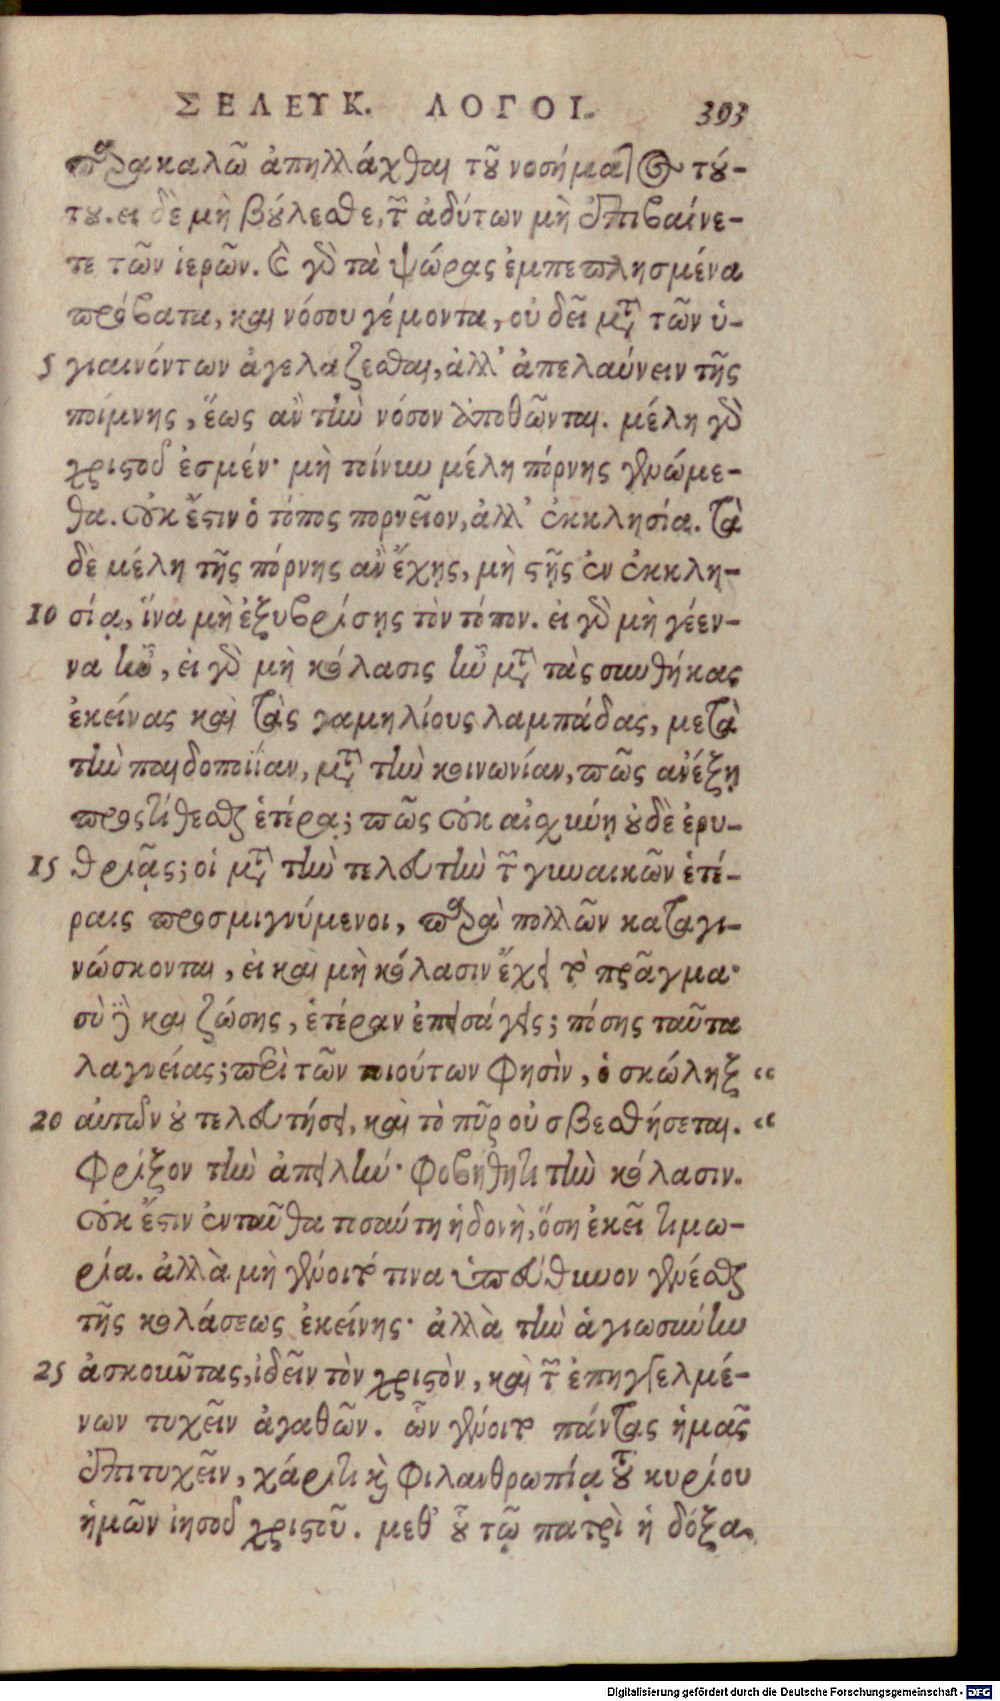 ΣΕΛΕΥΚ. ΛΟΓΟΙ. 393
παρακαλῶ ἀπηλλάχθαι τοῦ νοσήματος τού-
του. εἰ δὲ μὴ βούλεσθε, τῶν ἀδύτων μὴ ἐπιβαίνε-
τε τῶν ἱερῶν. καὶ γὰρ τὰ ψώρας ἐμπεπλησμένα
πρόβατα, καὶ νόσου γέμοντα, οὐ δεῖ μετὰ τῶν ὑ-
5 γιαινόντων ἀγελάζεσθαι, ἀλλ' ἀπελαύνειν τῆς
ποίμνης, ἕως ἂν τὴν νόσον ἀποθῶνται. μέλη γὰρ
χριστοῦ ἐσμέν· μὴ τοίνυν μέλη πόρνης γενώμε-
θα. οὐκ ἔστιν ὁ τόπος πορνεῖον, ἀλλ' ἐκκλησία. τὰ
δὲ μέλη τῆς πόρνης ἂν ἔχῃς, μὴ στῇς ἐν ἐκκλη-
10 σίᾳ, ἵνα μὴ ἐξυβρίσῃς τὸν τόπον. εἰ γὰρ μὴ γέεν-
να ἦν, εἰ γὰρ μὴ κόλασις ἦν μετὰ τὰς συνθήκας
ἐκείνας καὶ τὰς γαμηλίους λαμπάδας, μετὰ
τὴν παιδοποιΐαν, μετὰ τὴν κοινωνίαν, πῶς ἀνέξῃ
προςτίθεσθαι ἑτέρᾳ; πῶς οὐκ αἰσχύνῃ οὐδὲ ἐρυ-
15 θριᾷς; οἱ μετὰ τὴν τελευτὴν τῶν γυναικῶν ἑτέ-
ραις προσμιγνύμενοι, παρὰ πολλῶν καταγι-
νώσκονται, εἰ καὶ μὴ κόλασιν ἔχει τὸ πρᾶγμα·
σὺ δὲ καὶ ζώσης, ἑτέραν ἐπεισάγεις; πόσης ταῦτα
λαγνείας; περὶ τῶν τοιούτων φησὶν, ὁ σκώληξ “
20 αὐτῶν οὐ τελευτήσει, καὶ τὸ πῦρ οὐ σβεσθήσεται. “
φρίξον τὴν ἀπειλήν· φοβήθητι τὴν κόλασιν.
οὐκ ἔστιν ἐνταῦθα τοσαύτη ἡδονὴ, ὅση ἐκεῖ τιμω-
ρία. ἀλλὰ μὴ γένοιτό τινα ὑπεύθυνον γενέσθαι
τῆς κολάσεως ἐκείνης· ἀλλὰ τὴν ἁγιωσύνην
25 ἀσκοῦντας, ἰδεῖν τὸν χριστὸν, καὶ τῶν ἐπηγγελμέ-
νων τυχεῖν ἀγαθῶν. ὧν γένοιτο πάντας ἡμᾶς
ἐπιτυχεῖν, χάριτι καὶ φιλανθρωπίᾳ τοῦ κυρίου
ἡμῶν ἰησοῦ χριστοῦ. μεθ' οὗ τῷ πατρὶ ἡ δόξα
Digitalisierung gefördert durch die Deutsche Forschungsgemeinschaft - DFG